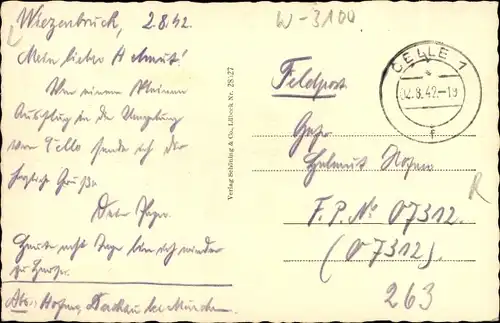 Wiezenbruck, 2.8.42.
Mein lieber Helmut!
Von einem kleinen
Ausflug in die Umgebung
von Celle sende ich dir
herzliche Grüße
Dein Papa.
Heute acht Tage bin ich wieder
zu Hause.
Abs.: Hofner, Dachau bei München
Verlag Schöning & Co., Lübeck Nr. 28127
W-3100
CELLE 1
02.8.42.-19
f
Feldpost
Gefr.
Helmut
F.P.No 07312.
(07312)
263
R